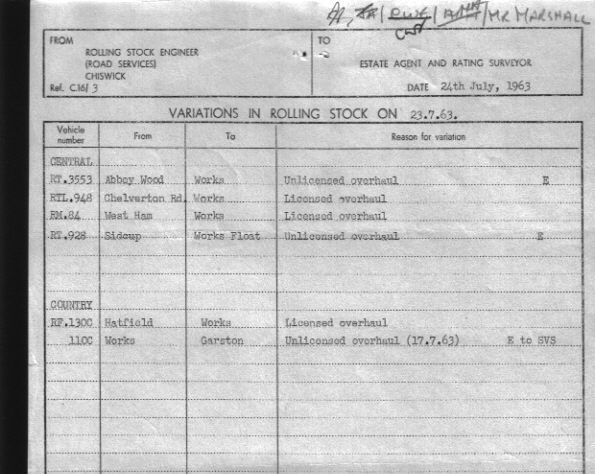 MR MARSHALL
FROM
ROLLING STOCK ENGINEER
(ROAD SERVICES)
CHISWICK
Ref. C.16/ 3
TO
ESTATE AGENT AND RATING SURVEYOR
DATE 24th July, 1963
VARIATIONS IN ROLLING STOCK ON 23.7.63.
Vehicle number From To Reason for variation
CENTRAL
RT.3553 Abbey Wood Works Unlicensed overhaul E
RTL.948 Chelverton Rd. Works Licensed overhaul
RM.84 West Ham Works Licensed overhaul
RT.928 Sidcup Works Float Unlicensed overhaul E
COUNTRY
RF.130C Hatfield Works Licensed overhaul
110C Works Garston Unlicensed overhaul (17.7.63) E to SVS